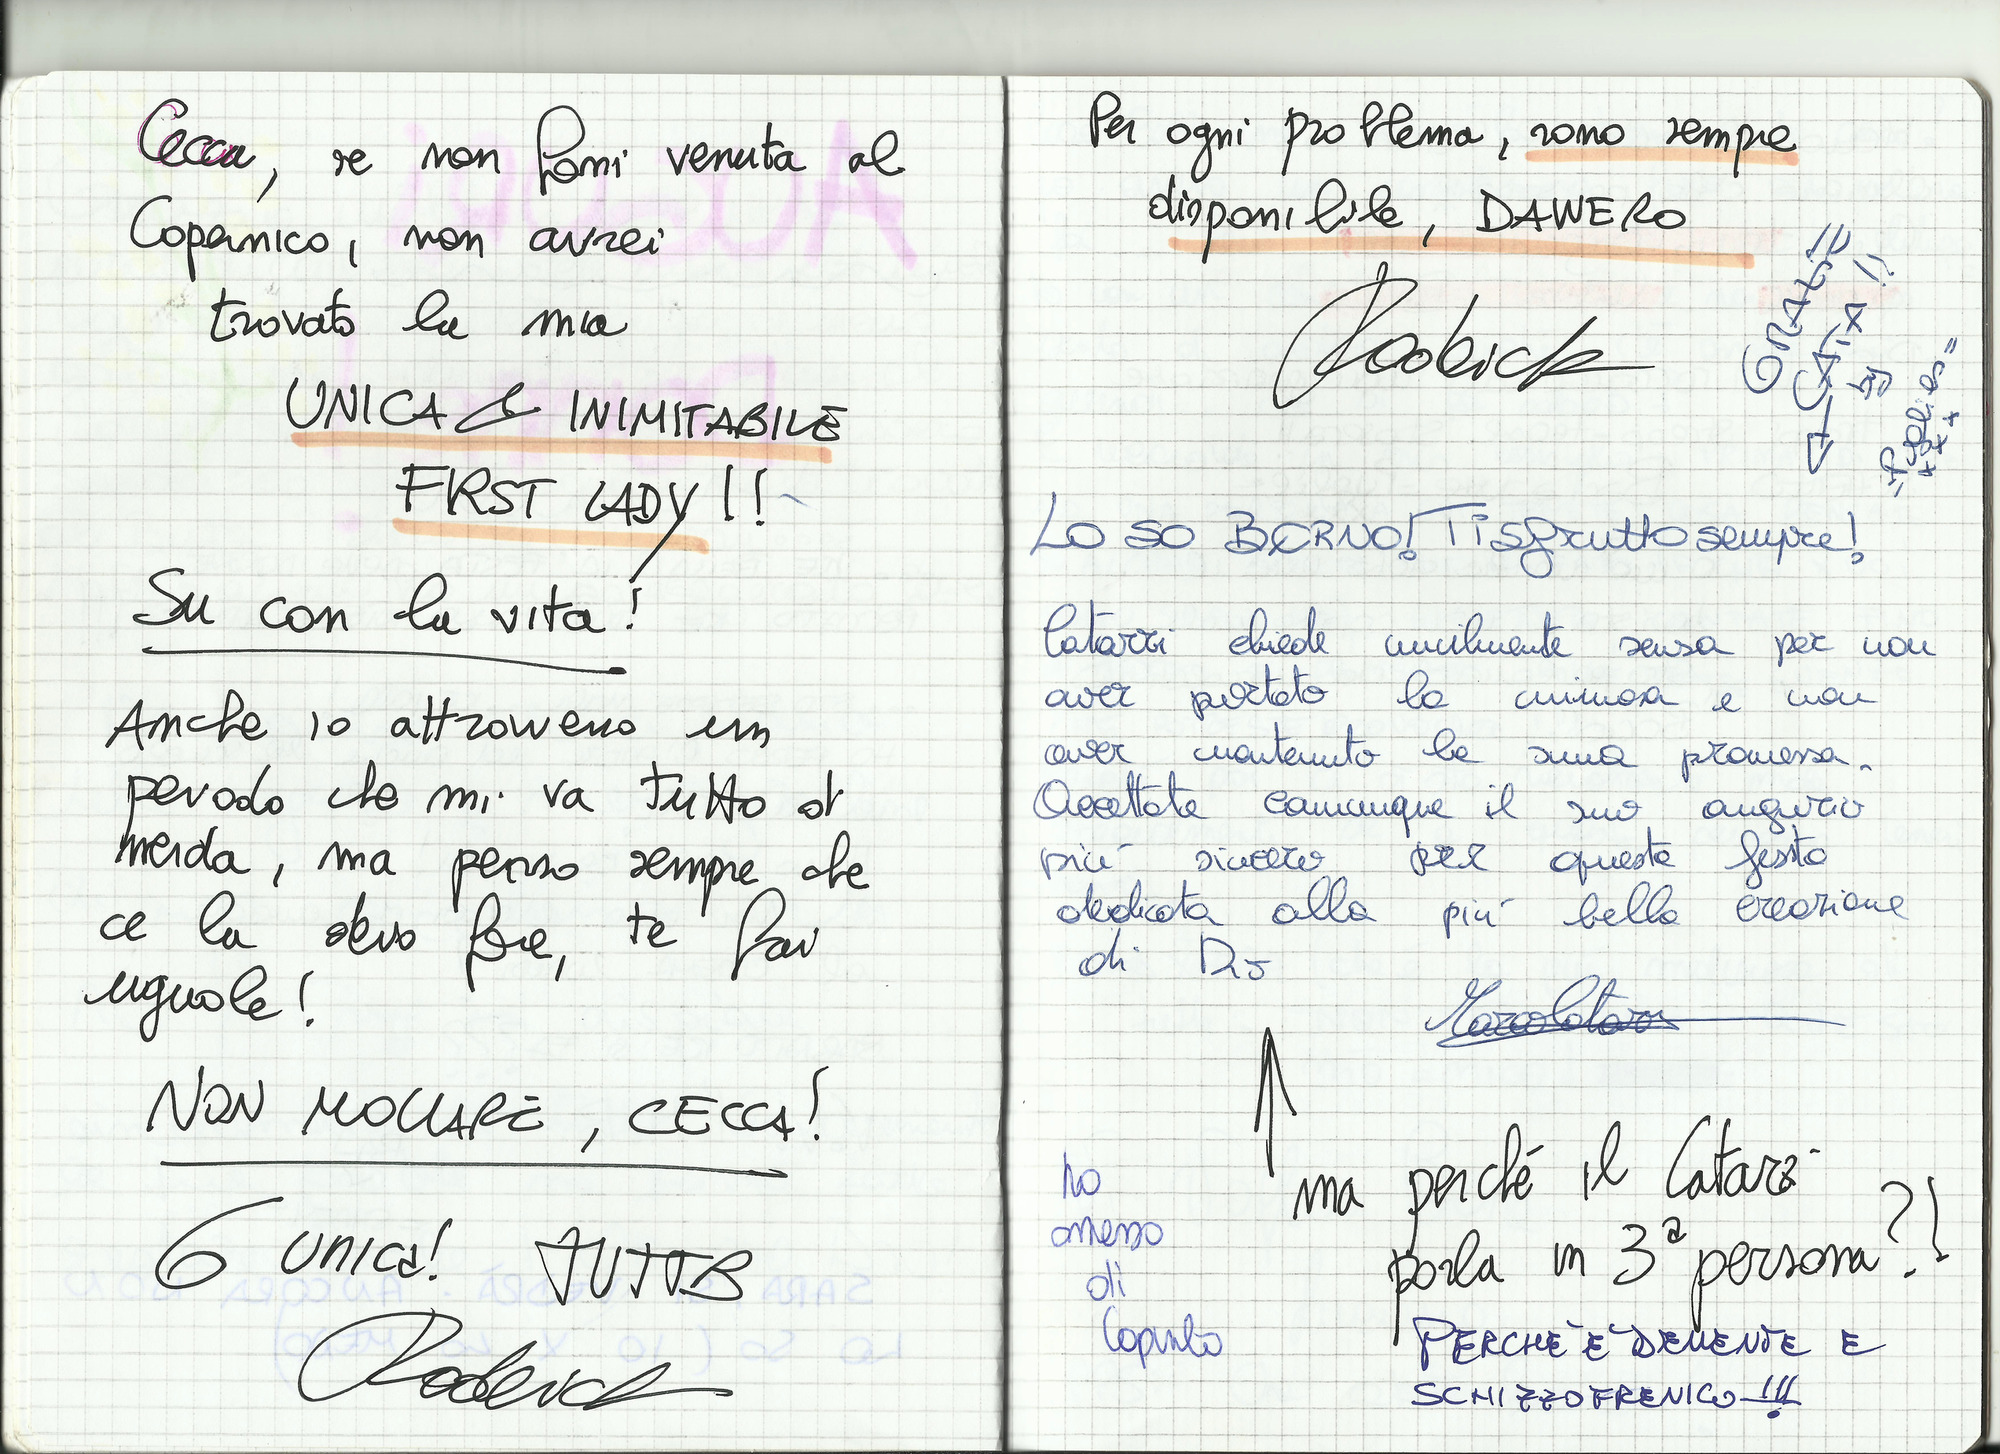 Cecca, se non fossi venuta al
Copernico, non avrei
trovato la mia
UNICA E INIMITABILE
FIRST LADY!!
Su con la vita!
Anche io attraverso un
periodo che mi va tutto di
merda, ma penso sempre che
ce la devo fare, te fai
uguale!
NON MOLLARE, CECCA!
6 UNICA! TVTTB
Roderick
Per ogni problema, sono sempre
disponibile, DAVVERO
Roderick
GRAZIE
CATIX!!
by
LO SO BERNO! Ti sfrutto sempre!
Catarzi chiede umilmente scusa per non
aver portato la mimosa e non
aver mantenuto la sua promessa.
Accettate comunque il suo augurio
più sincero per questa festa
dedicata alla più bella creazione
di Dio
Marco Catarzi
ma perché il Catarzi
parla in 3ª persona?!
PERCHÈ È DEMENTE E
SCHIZZOFRENICO!!!
ho
smesso
di
Copiarlo